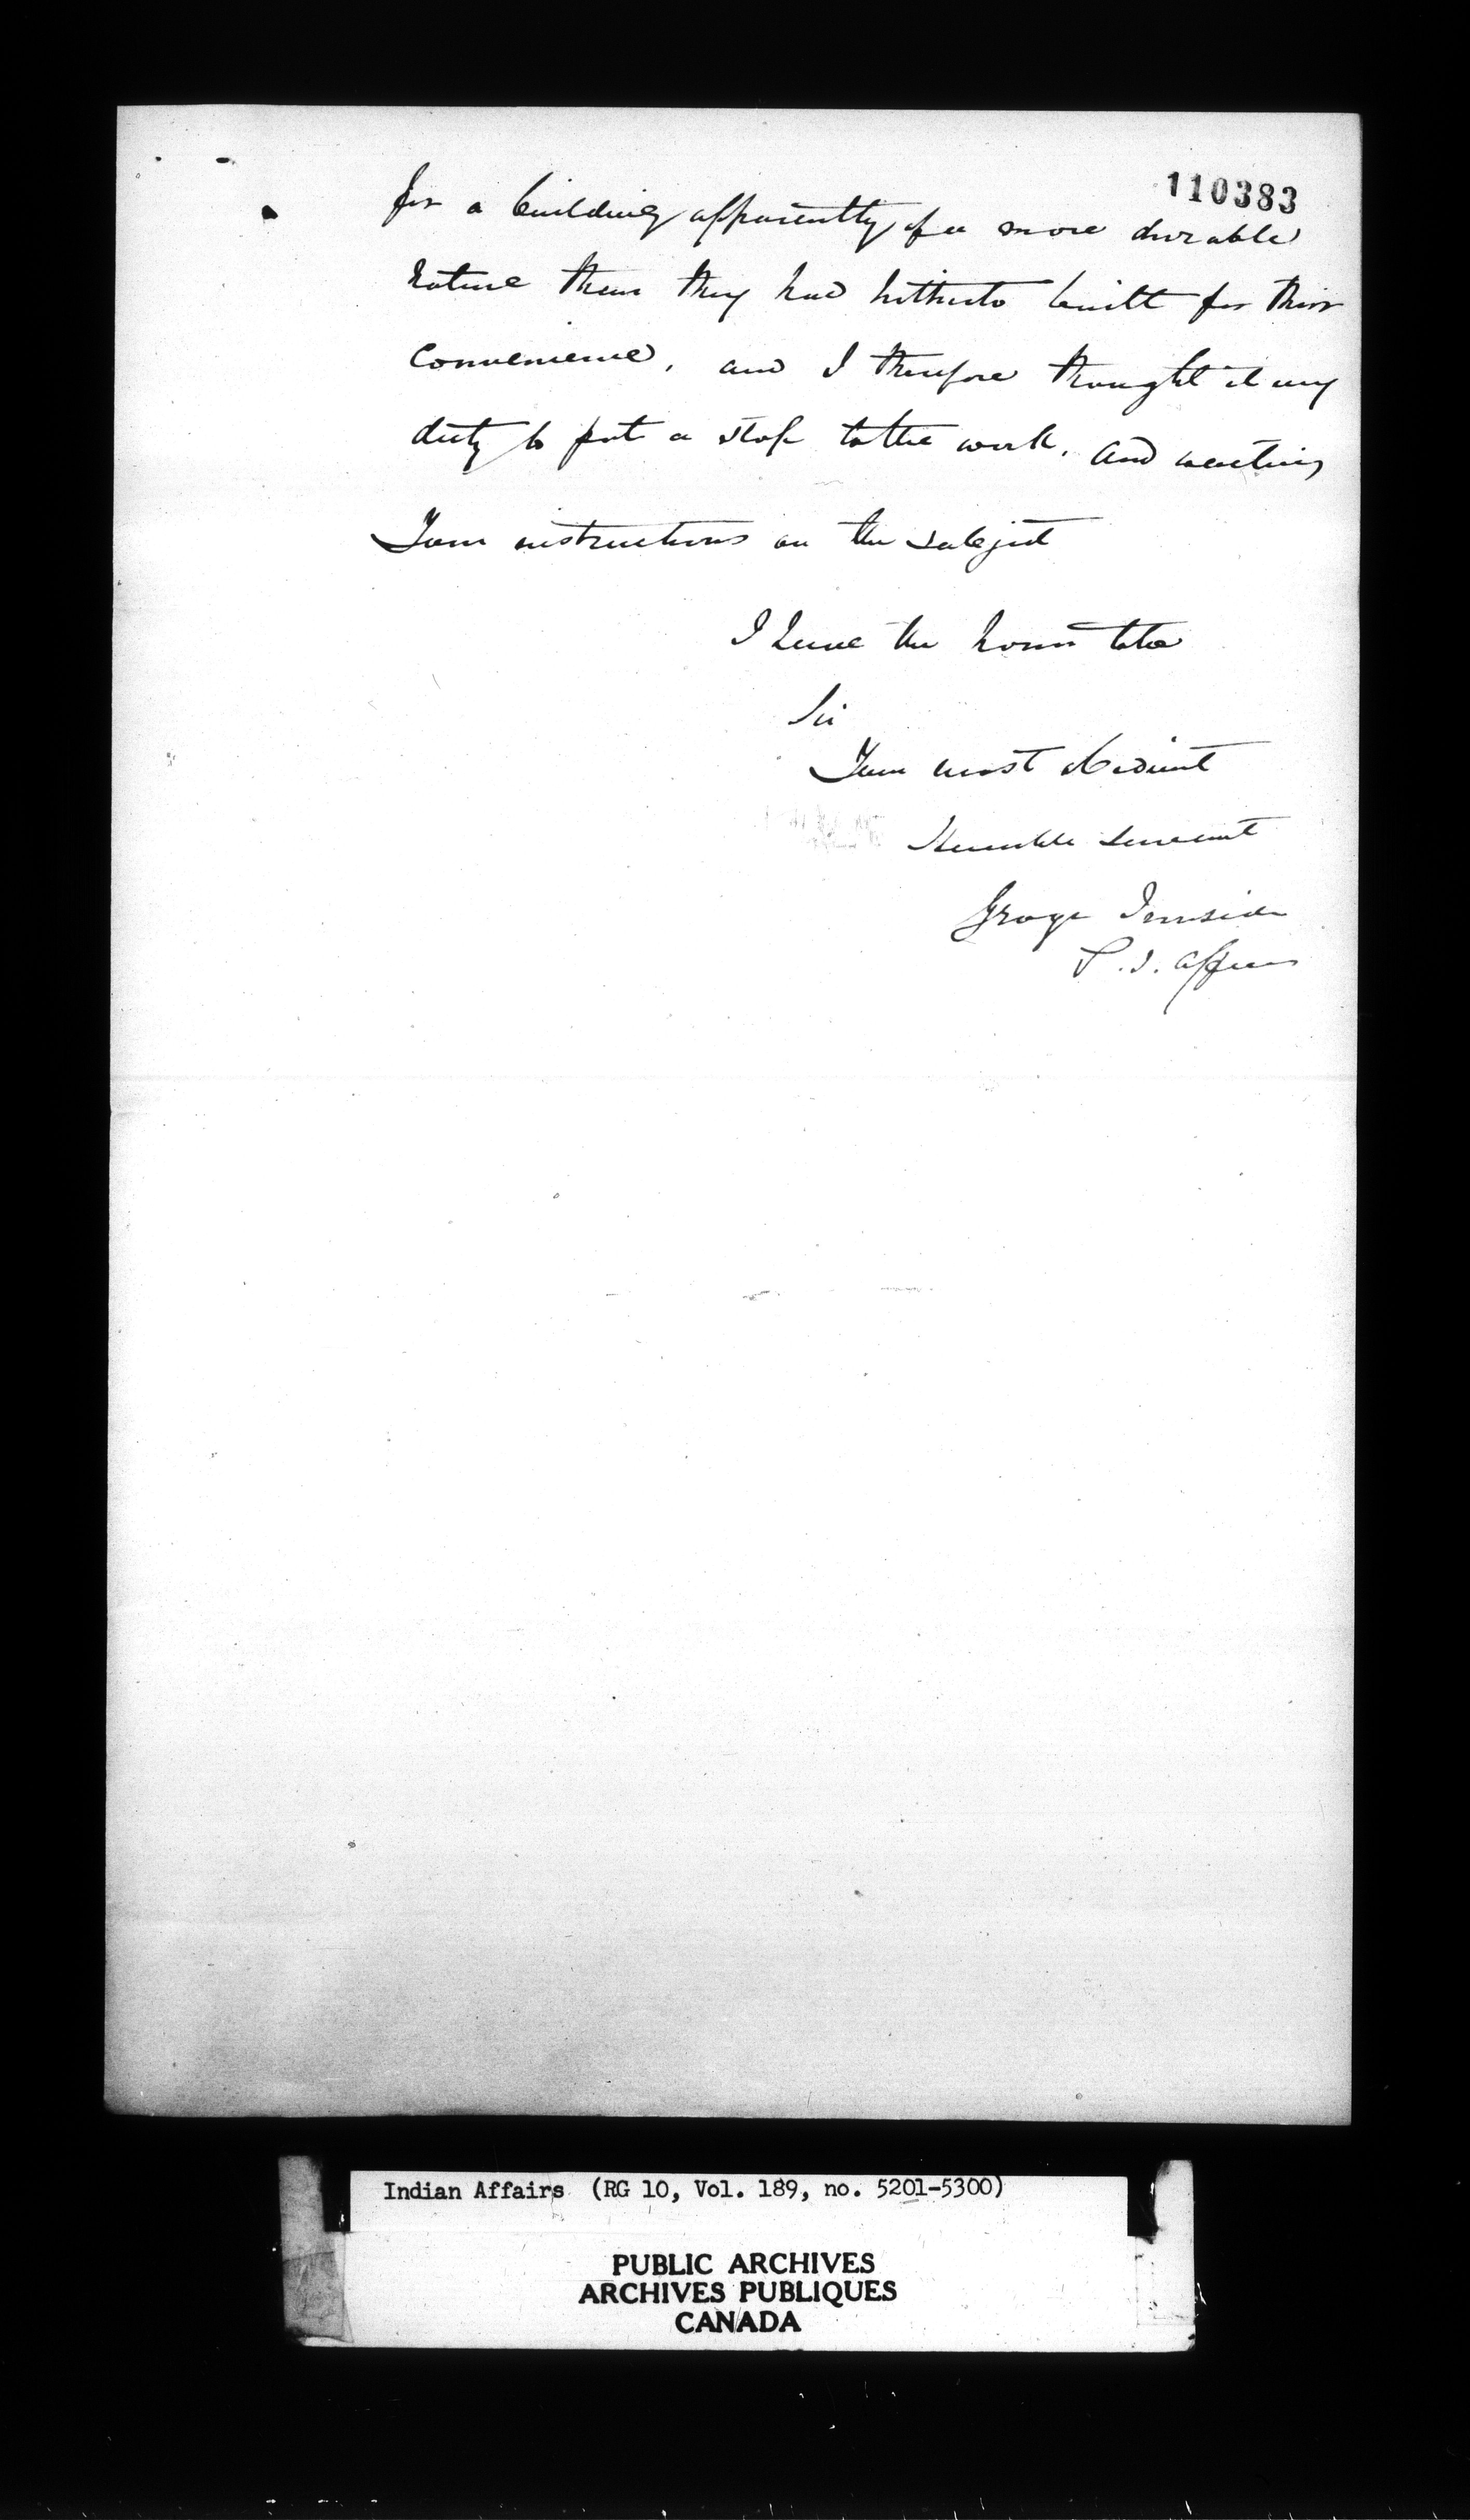 110383
for a building apparently of a more durable
nature than they had hitherto built for their
convenience, and I therefore thought it my
duty to put a stop to the work. And waiting
Your instructions on the subject
I have the honor to be
Sir
Your most obedient
Humble servant
George Ironside
S. I. Affairs
Indian Affairs (RG 10, Vol. 189, no. 5201-5300)
PUBLIC ARCHIVES
ARCHIVES PUBLIQUES
CANADA